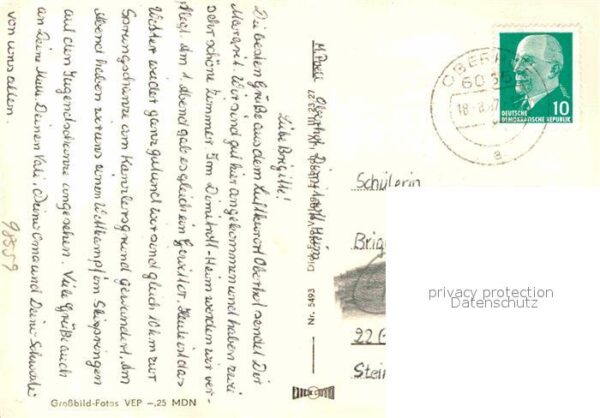 Liebe Brigitte!
Die besten Grüße aus dem Luftkurort Oberhof sendet Dir
Margrit. Wir sind gut hier angekommen und haben zwei
sehr schöne Zimmer. Im Dimitroff-Heim werden wir ver-
pflegt. Am 1. Abend gab es gleich ein Gewitter. Heute ist das
Wetter wieder ganz gut und wir sind gleich 10 km zur
Sprungschanze am Kanzlersgrund gewandert. Am
Abend haben wir uns einen Wettkampf im Skispringen
auf der Jugendschanze angesehen. Viele Grüße auch
an Deine Mutti, Deinen Vati, Deine Oma und Deine Schwester
von uns allen.
98559
Großbild-Fotos VEP -,25 MDN
M. Oberhof, Dimitroff Heim
III 23 27
Nr. 5493
DICK FOTO
OBERH
6055
18.-8.67
a
DEUTSCHE
DEMOKRATISCHE REPUBLIK
10
Schülerin
Brig
22 G
Stein
privacy protection
Datenschutz